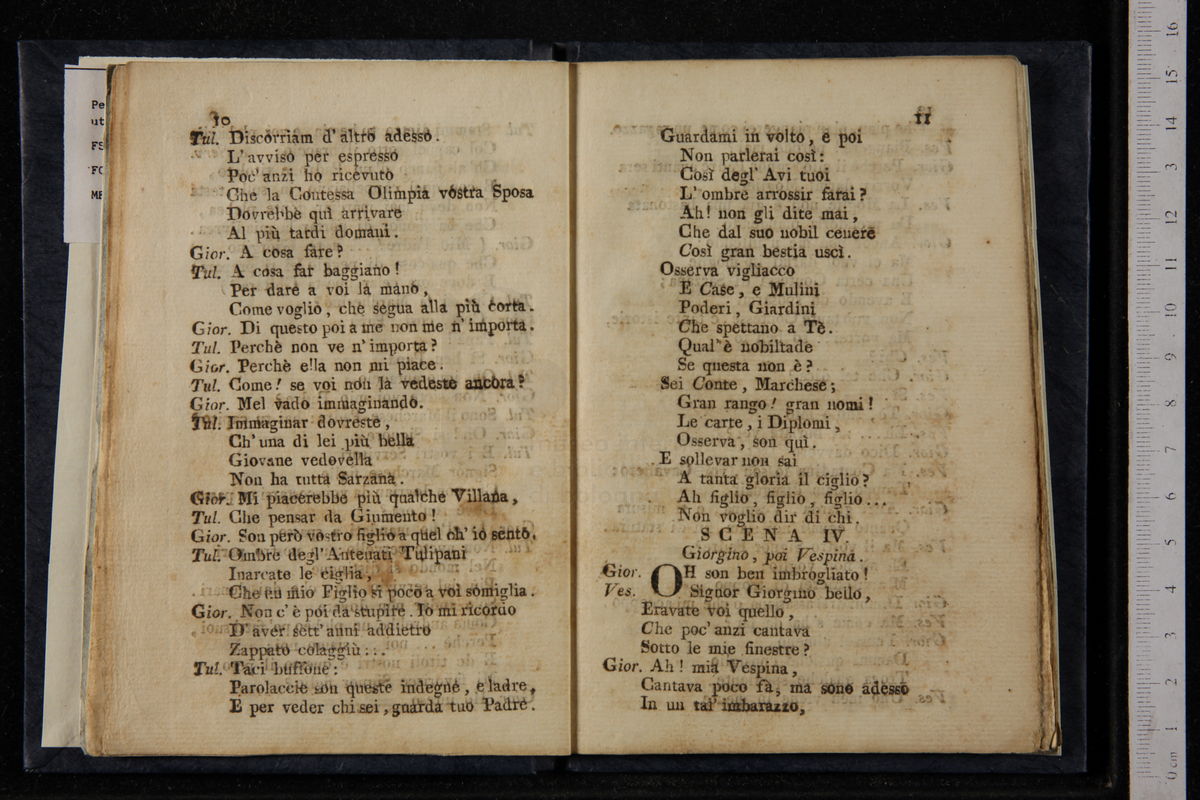 10
Tul. Discorriam d' altro adesso.
L' avviso per espresso
Poc' anzi ho ricevuto
Che la Contessa Olimpia vostra Sposa
Dovrebbe quì arrivare
Al più tardi domani.
Gior. A cosa fare?
Tul. A cosa far baggiano!
Per dare a voi la mano,
Come voglio, che segua alla più corta.
Gior. Di questo poi a me non me n' importa.
Tul. Perchè non ve n' importa?
Gior. Perchè ella non mi piace.
Tul. Come! se voi non la vedeste ancora?
Gior. Mel vado immaginando.
Tul. Immaginar dovreste,
Ch' una di lei più bella
Giovane vedovella
Non ha tutta Sarzana.
Gior. Mi piacerebbe più qualche Villana,
Tul. Che pensar da Giumento!
Gior. Son però vostro figlio a quel ch' io sento.
Tul. Ombre degl' Antenati Tulipani
Inarcate le ciglia,
Che un mio Figlio sì poco a voi somiglia.
Gior. Non c' è poi da stupire. Io mi ricordo
D' aver sett' anni addietro
Zappato colaggiù...
Tul. Taci buffone:
Parolaccie son queste indegne, e ladre,
E per veder chi sei, guarda tuo Padre.
11
Guardami in volto, e poi
Non parlerai così:
Così degl' Avi tuoi
L' ombre arrossir farai?
Ah! non gli dite mai,
Che dal suo nobil cenere
Così gran bestia uscì.
Osserva vigliacco
E Case, e Mulini
Poderi, Giardini
Che spettano a Tè.
Qual' è nobiltade
Se questa non è?
Sei Conte, Marchese;
Gran rango! gran nomi!
Le carte, i Diplomi,
Osserva, son quì.
E sollevar non sai
A tanta gloria il ciglio?
Ah figlio, figlio, figlio...
Non voglio dir di chi.
SCENA IV.
Giorgino, poi Vespina.
Gior. OH son ben imbrogliato!
Ves. Signor Giorgino bello,
Eravate voi quello,
Che poc' anzi cantava
Sotto le mie finestre?
Gior. Ah! mia Vespina,
Cantava poco fà, ma sono adesso
In un tal' imbarazzo,
Pe
ut
FS
FO
ME
0 cm 1 2 3 4 5 6 7 8 9 10 11 12 13 14 15 16